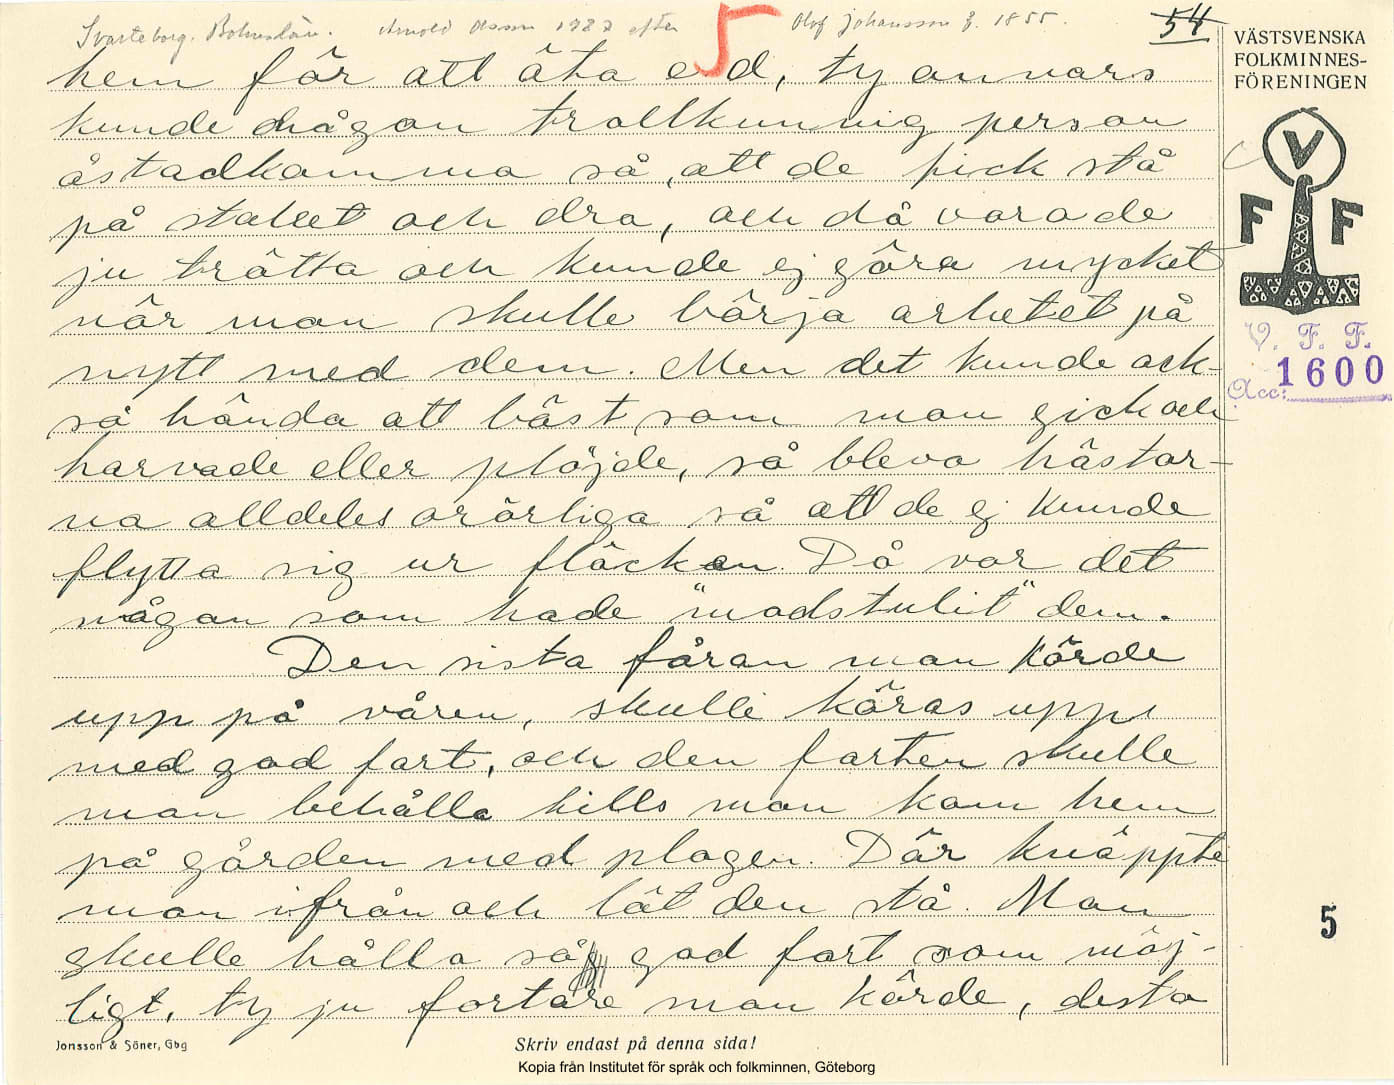 Svarteborg. Bohuslän. Arnold Olsson 1927 efter Olof Johansson f. 1855.
5
54
hem för att äta o d, ty annars
kunde någon trollkunnig person
åstadkomma så, att de fick stå
på stallet och dra, och då varo de
ju trötta och kunde ej göra mycket
när man skulle börja arbetet på
nytt med dem. Men det kunde ock-
så hända att bäst som man gick och
harvade eller plöjde, så blevo hästar-
na alldeles orörliga så att de ej kunde
flytta sig ur fläcken. Då var det
någon som hade "modstulit" dem.
Den sista fåran man körde
upp på våren, skulle köras upp
med god fart, och den farten skulle
man behålla tills man kom hem
på gården med plogen. Där knäppte
man ifrån och lät den stå. Man
skulle hålla så god fart som möj-
ligt, ty ju fortare man körde, desto
VÄSTSVENSKA
FOLKMINNES-
FÖRENINGEN
V
F F
V. F. F.
Acc: 1600
5
Jonsson & Söner, Gbg
Skriv endast på denna sida!
Kopia från Institutet för språk och folkminnen, Göteborg